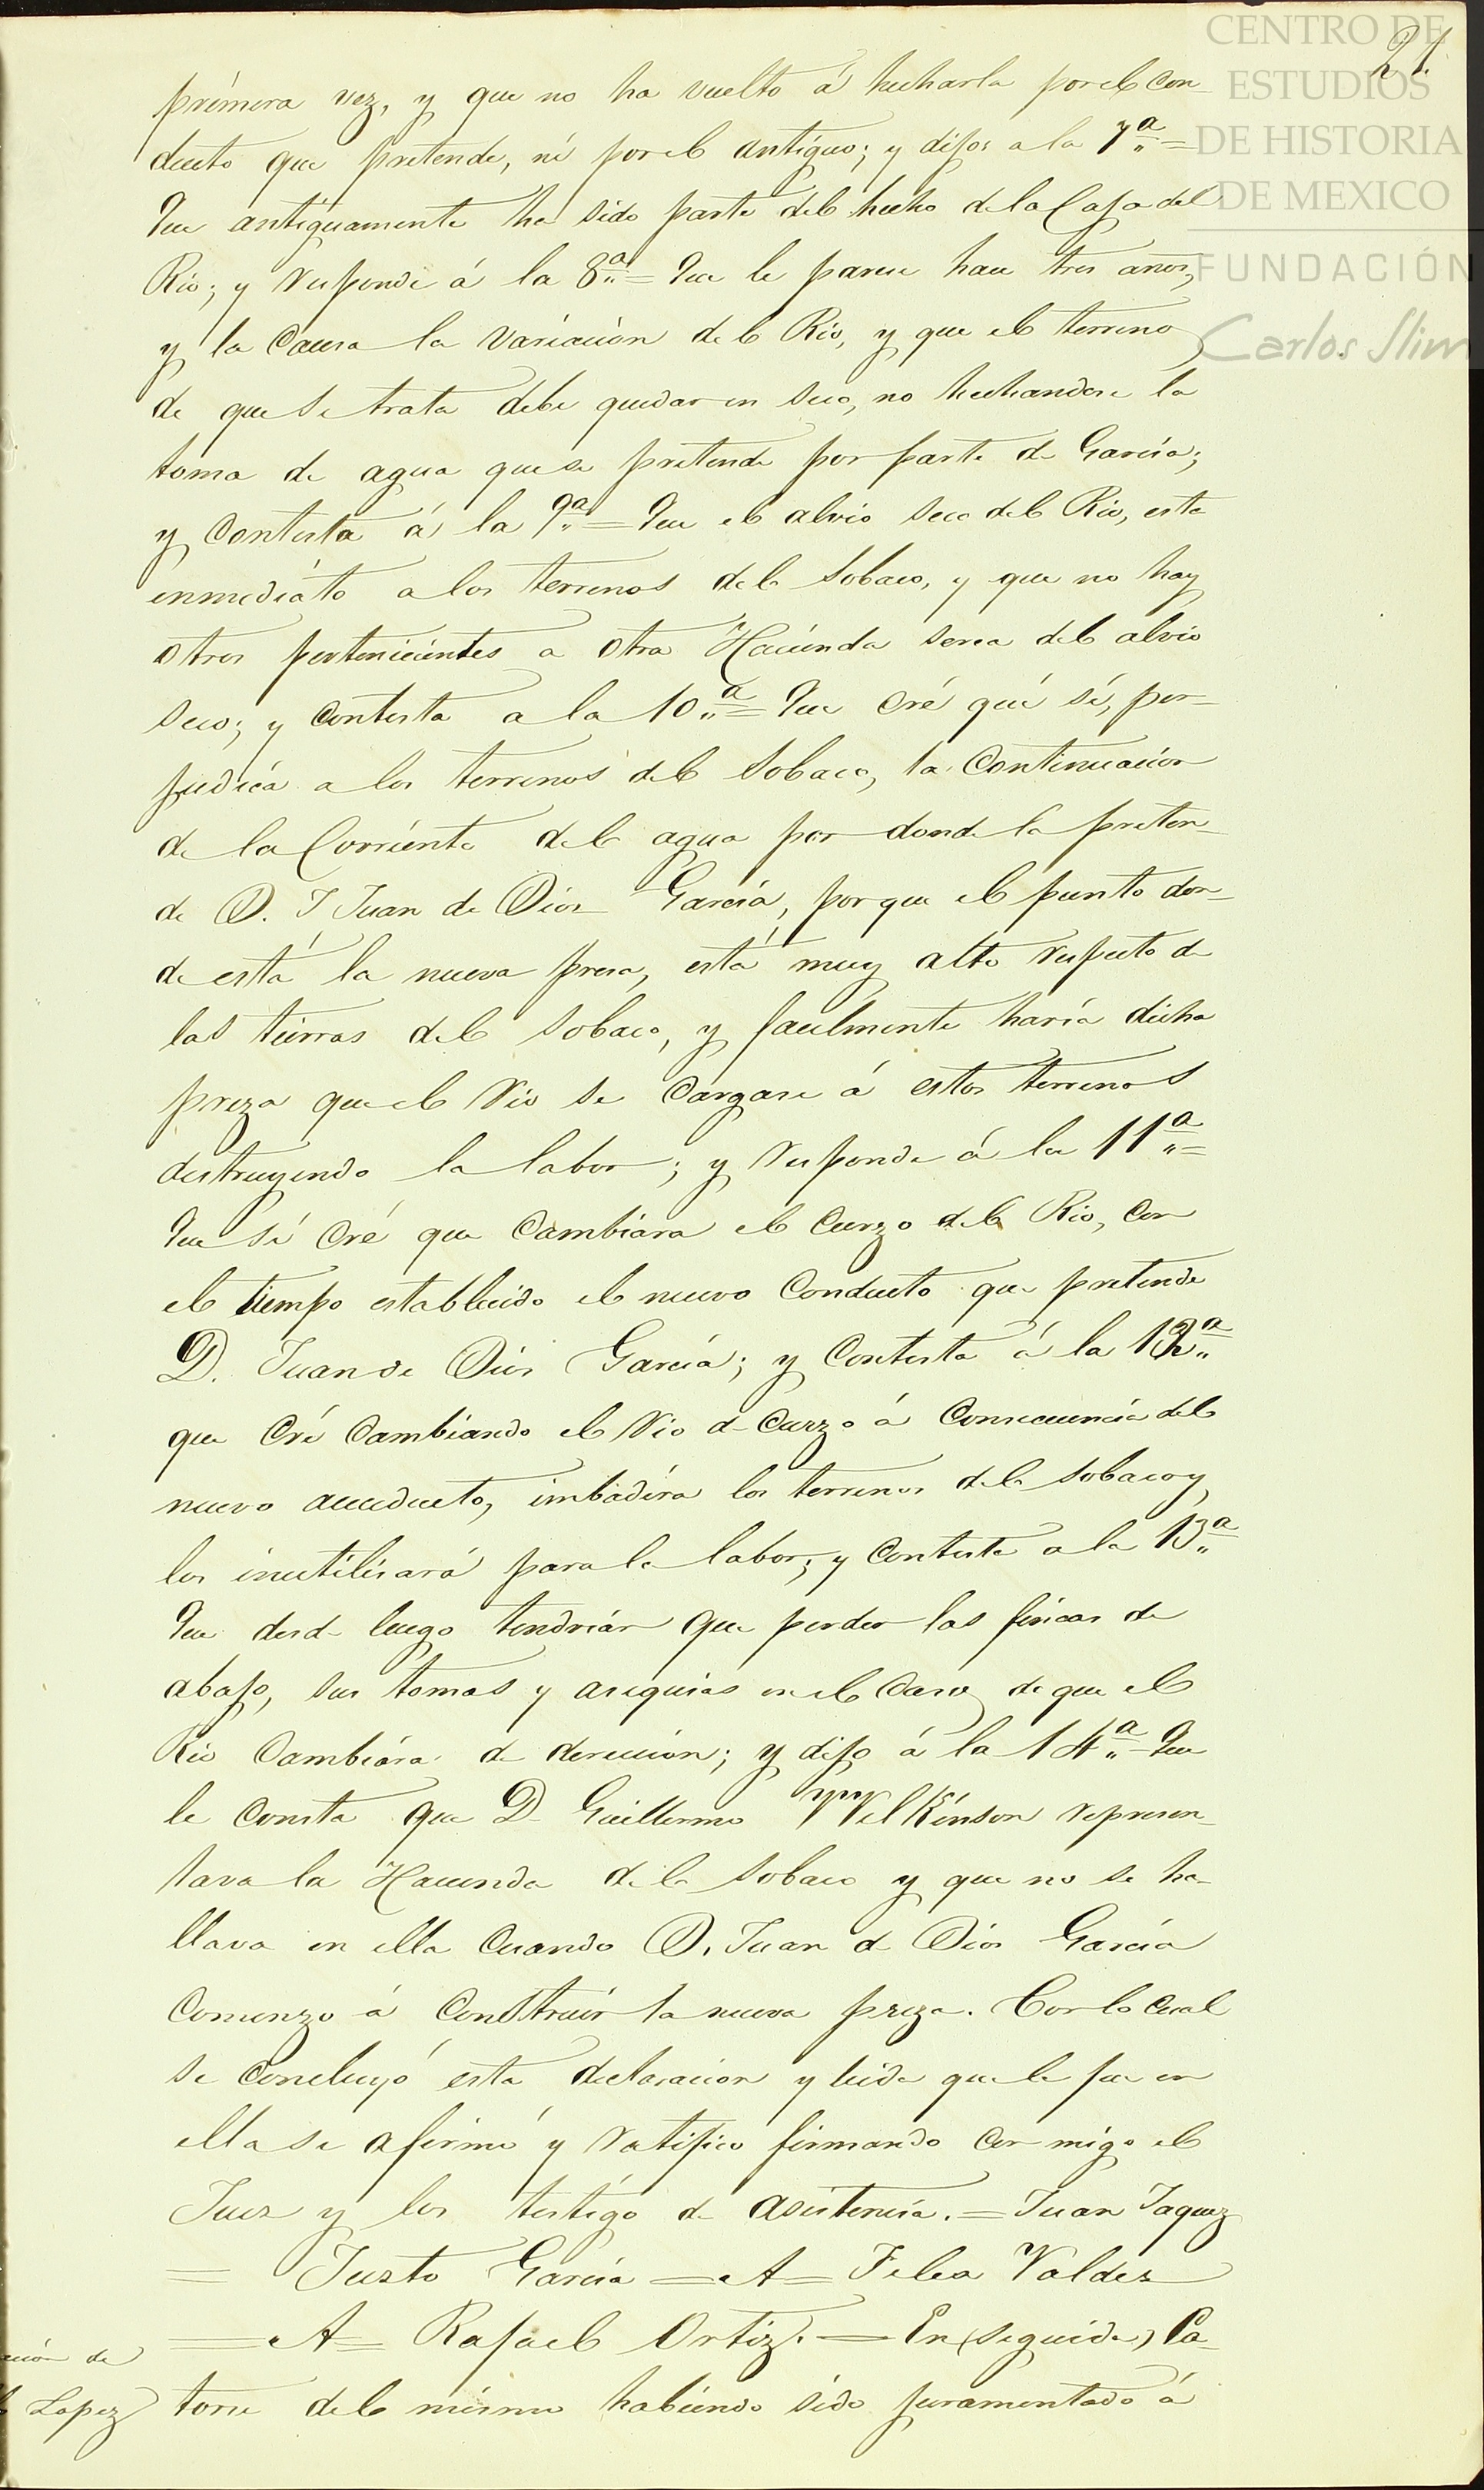 CENTRO DE
ESTUDIOS
DE HISTORIA
DE MEXICO
FUNDACIÓN
Carlos Slim
21
primera vez, y que no ha vuelto á hecharla por el con-
ducto que pretende, ni por el antiguo; y dijo a la 7ª =
Que antiguamente ha sido parte del hecho de la Caja del
Rio; y responde á la 8ª = Que le parece hace tres años,
y la causa la variacion del Rio, y que el terreno
de que se trata debe quedar en seco, no hechandose la
toma de agua que se pretende por parte de García;
y contesta á la 9ª = Que el alvio seco del Rio, esta
inmediato a los terrenos del Sobaco, y que no hay
otros pertenicientes a otra Hacienda serca del alvio
seco; y contesta a la 10ª = Que cré que sí, per-
judica a los terrenos del Sobaco, la continuacion
de la Corriente del agua por donde la preten-
de D. J Juan de Dios García, porque el punto don-
de está la nueva presa, está muy alto respecto de
las tierras del Sobaco, y facilmente haría dicha
preza que el rio se cargase á estos terrenos
destruyendo la labor; y responde á la 11ª =
Que sí cré que cambiara el curzo del Rio, con
el tiempo establecido el nuevo conducto que pretende
D. Juan de Dios García; y contesta á la 12ª
que cré cambiando el rio de curzo á consecuencia del
nuevo acueducto, imbadira los terrenos del Sobaco y
los inutilisará para la labor; y contesta a la 13ª
Que desde luego tendrián que perder las fincas de
abajo, sus tomas y asequias en el caso de que el
Rio cambiára de dereccion; y dijo á la 14ª = Que
le consta que D. Guillermo Wilkinson represen-
tava la Hacienda del Sobaco y que no se ha-
llava en ella cuando D. Juan de Dios García
comenzo á construir la nueva preza. Con lo cual
se concluyó esta declaracion y leida que le fue en
ella se afirmó y ratifico firmando con migo el
Juez y los testigo de asistencia. = Juan Jaquez
= Justo García = A = Felea Valdez
= A = Rafael Ortiz. = En seguida, Ca-
torse del mismo habiendo sido juramentado á
ción de
Lopez